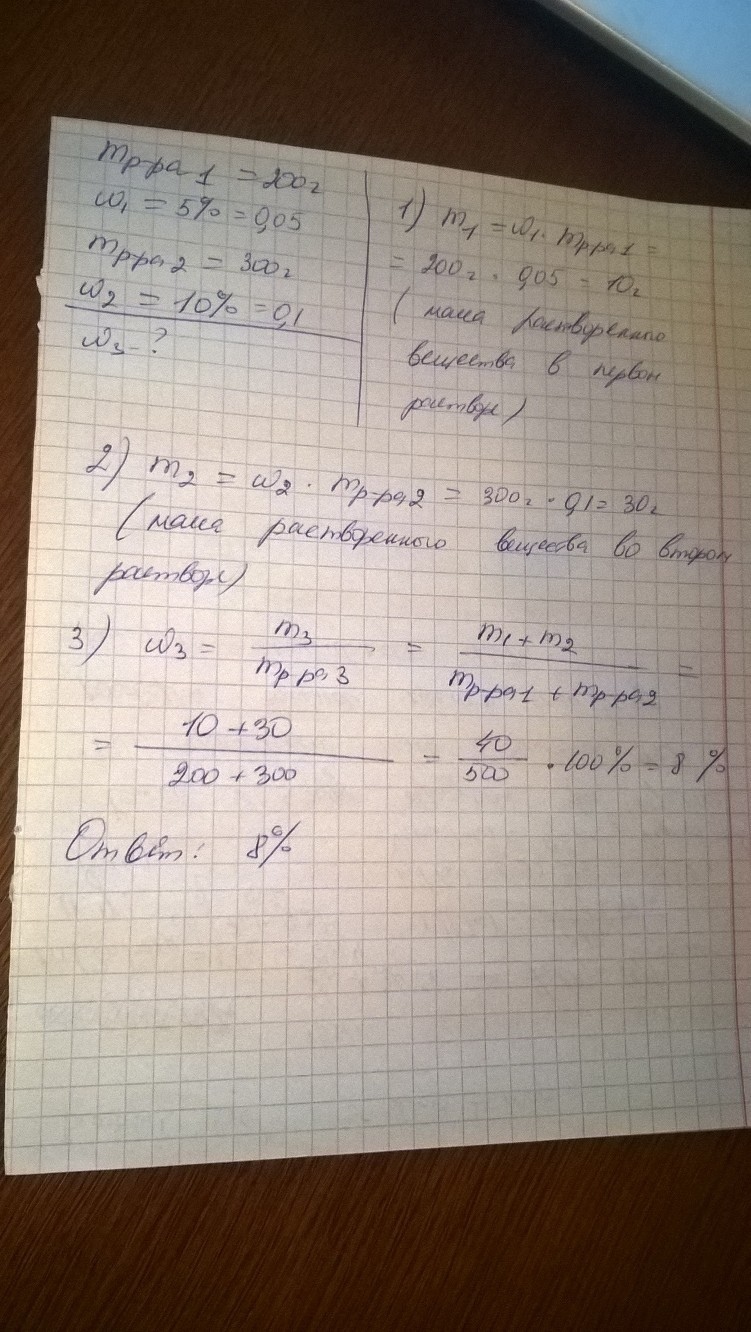 mр-ра 1 = 200г
ω₁ = 5% = 0,05
mр-ра 2 = 300г
ω₂ = 10% = 0,1
ω₃ - ?
1) m₁ = ω₁ · mр-ра 1 =
= 200г · 0,05 = 10г
( масса растворенного
вещества в первом
растворе)
2) m₂ = ω₂ · mр-ра 2 = 300г · 0,1 = 30г
(масса растворенного вещества во втором
растворе)
3) ω₃ = m₃ / mр-ра 3 = m₁ + m₂ / mр-ра 1 + mр-ра 2 =
= 10 + 30 / 200 + 300 = 40 / 500 · 100% = 8 %
Ответ: 8%